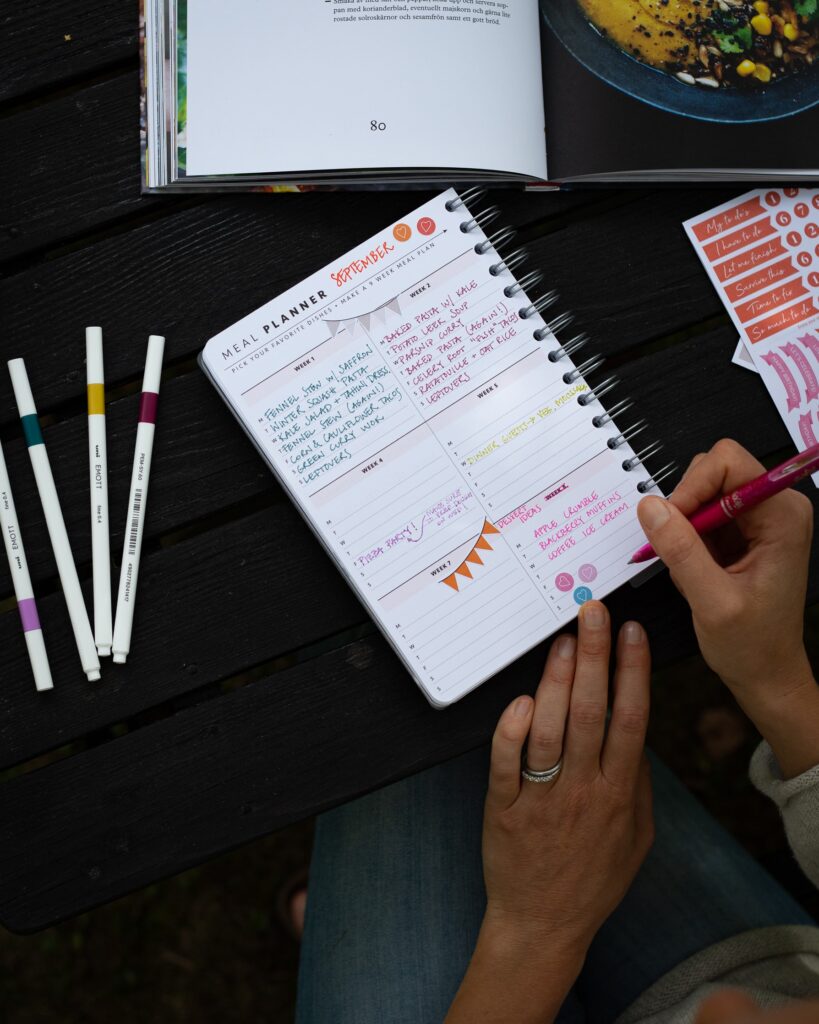 pan med korianderblad, eventuellt majskorn och gärna lite
rostade solroskärnor och sesamfrön samt ett gott bröd.
80
MEAL PLANNER SEPTEMBER
PICK YOUR FAVORITE DISHES • MAKE A 9 WEEK MEAL PLAN
WEEK 1
FENNEL STEW W/ SAFFRON
WINTER SQUASH PASTA
KALE SALAD + TAHINI DRESS.
FENNEL STEW (AGAIN!)
CORN & CAULIFLOWER TACOS
GREEN CURRY WOK
LEFTOVERS
WEEK 2
BAKED PASTA W/ KALE
POTATO LEEK SOUP
PARSNIP CURRY
BAKED PASTA (AGAIN!)
CELERY ROOT "FISH" TACOS
RATATOUILLE + OAT RICE
LEFTOVERS
WEEK 4
M
T
W
T
PIZZA PARTY!
F
S
S
WEEK 5
M
T
DINNER GUESTS → VEG.
W
T
F
S
S
WEEK 7
M
T
W
T
F
S
S
DESSERT
IDEAS
WEEK
M
APPLE CRUMBLE
T
BLACKBERRY MUFFINS
W
COFFEE ICE CREAM
T
F
S
S
My to do's
I have to do
Let me finish
Survive this
Time to finish
So much to do
EMOTT
EMOTT